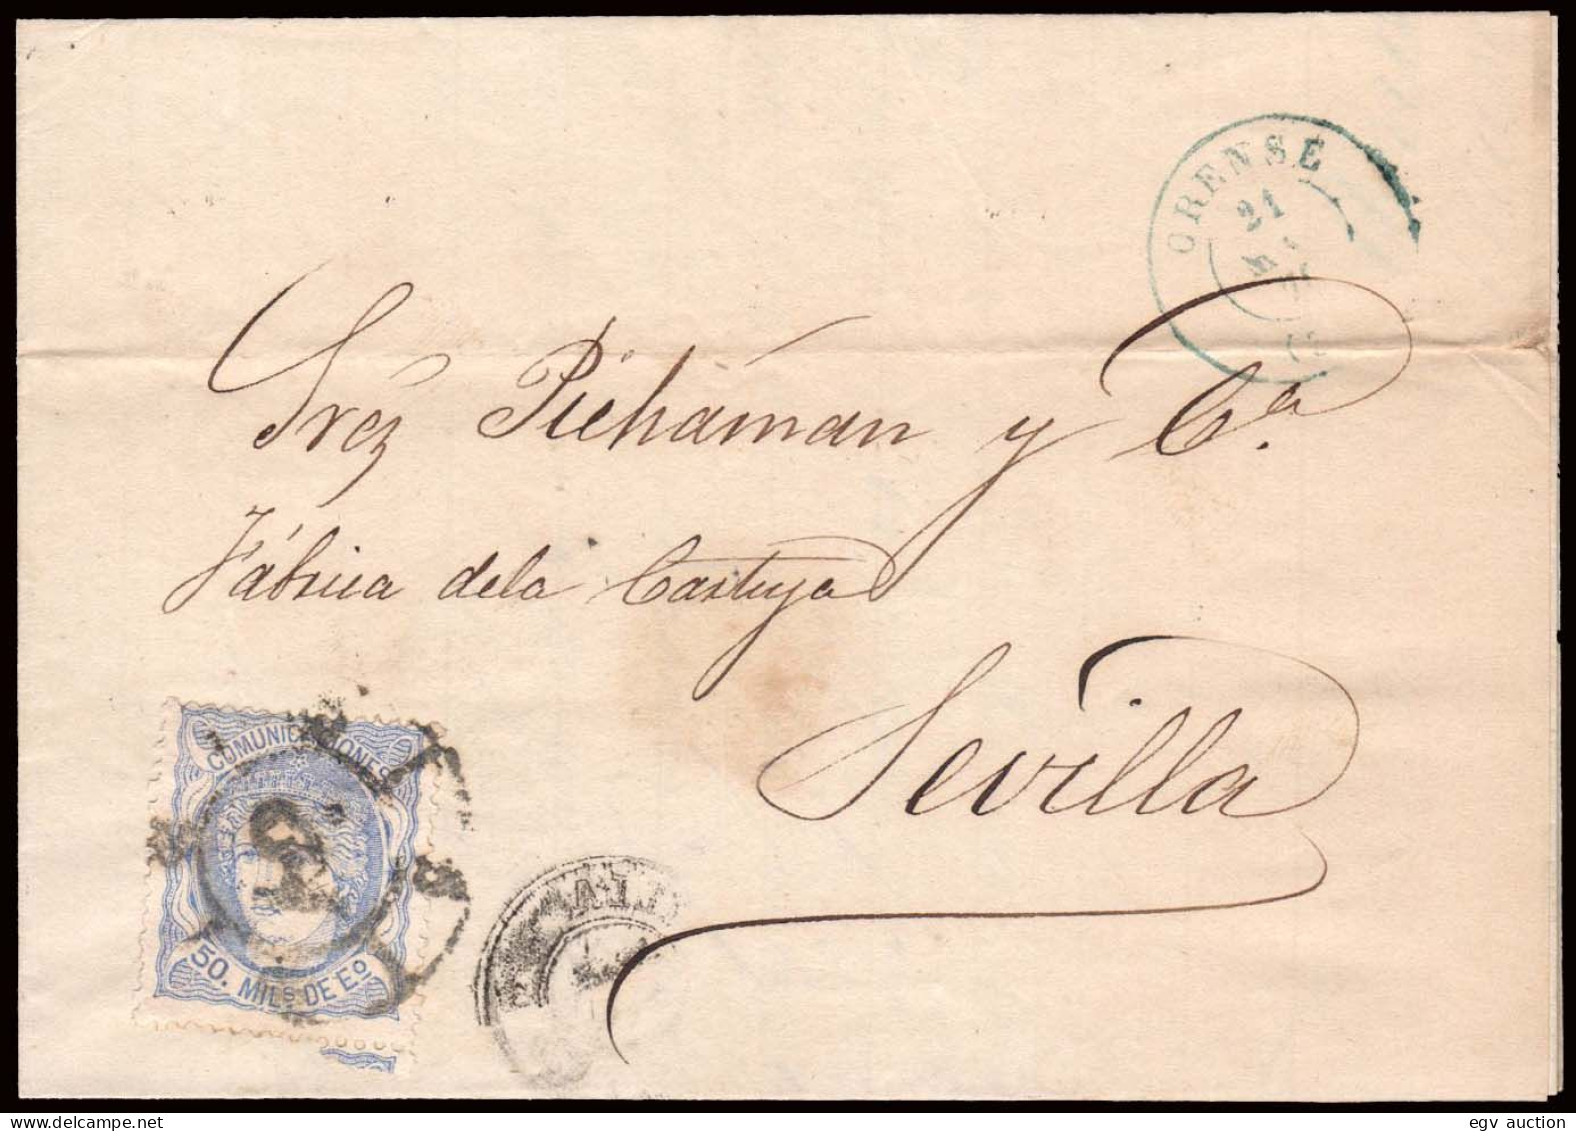 ORENSE
21
Srez Pichámán y Cª.
Fábrica dela Cartuja
Sevilla
COMUNICACIONES
50. MILS DE Eº
egv auction